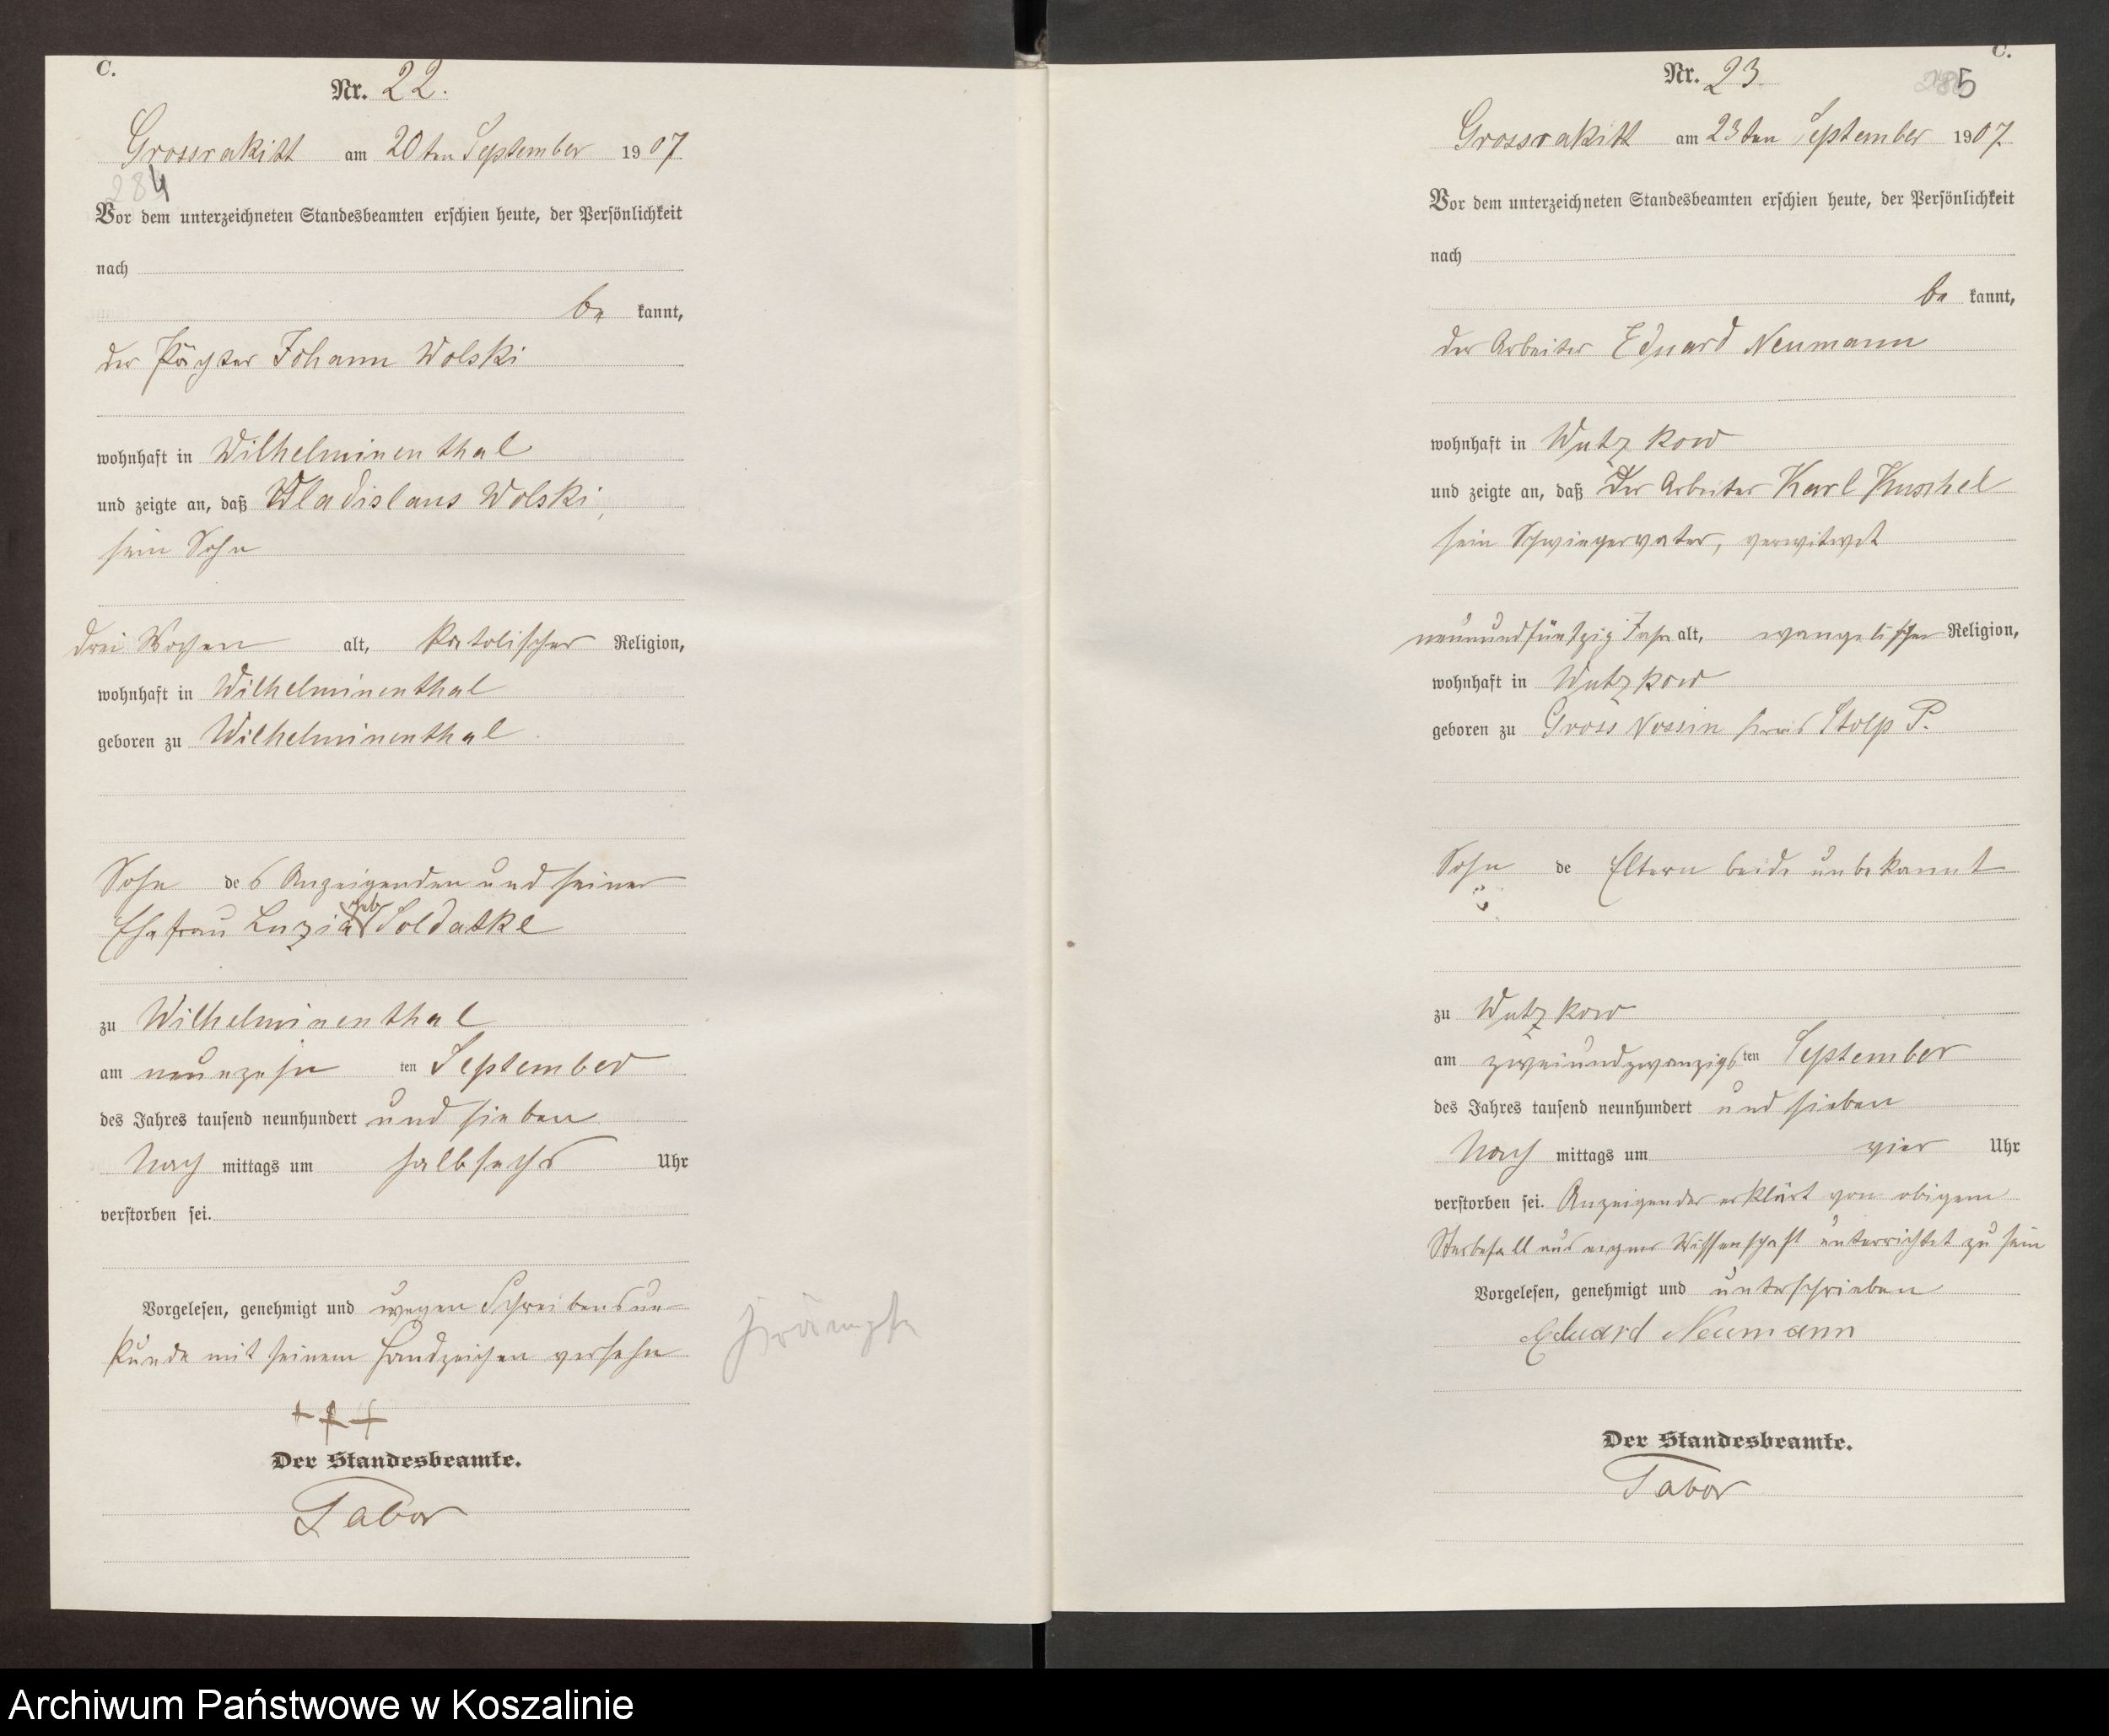 C.
Nr. 22.
Grossrakitt am 20ten September 1907
284
Vor dem unterzeichneten Standesbeamten erschien heute, der Persönlichkeit
nach
be kannt,
der Pächter Johann Wolski
wohnhaft in Wilhelminenthal
und zeigte an, daß Wladislaus Wolski,
sein Sohn
drei Wochen alt, katolischer Religion,
wohnhaft in Wilhelminenthal
geboren zu Wilhelminenthal
Sohn des Anzeigenden und seiner
Ehefrau Luzia geb Soldatke
zu Wilhelminenthal
am neunzehn ten September
des Jahres tausend neunhundert und sieben
Nach mittags um halbsechs Uhr
verstorben sei.
Vorgelesen, genehmigt und wegen Schreibensun-
kunde mit seinem Handzeichen versehn
+++
Der Standesbeamte.
Tabor
Krämpfe
C.
Nr. 23
285
Grossrakitt am 23ten September 1907.
Vor dem unterzeichneten Standesbeamten erschien heute, der Persönlichkeit
nach
be kannt,
der Arbeiter Eduard Neumann
wohnhaft in Wutzkow
und zeigte an, daß der Arbeiter Karl Kuschel
sein Schwiegervater, verwitwet
neunundfünfzig Jahr alt, evangelischer Religion,
wohnhaft in Wutzkow
geboren zu Gross Nossin Kreis Stolp P.
Sohn de Eltern beide unbekannt
zu Wutzkow
am zweiundzwanzigsten September
des Jahres tausend neunhundert und sieben
Nach mittags um vier Uhr
verstorben sei. Anzeigender erklärt von obigem
Sterbefall aus eigner Wissenschaft unterrichtet zu sein
Vorgelesen, genehmigt und unterschrieben
Eduard Neumann
Der Standesbeamte.
Tabor
Archiwum Państwowe w Koszalinie